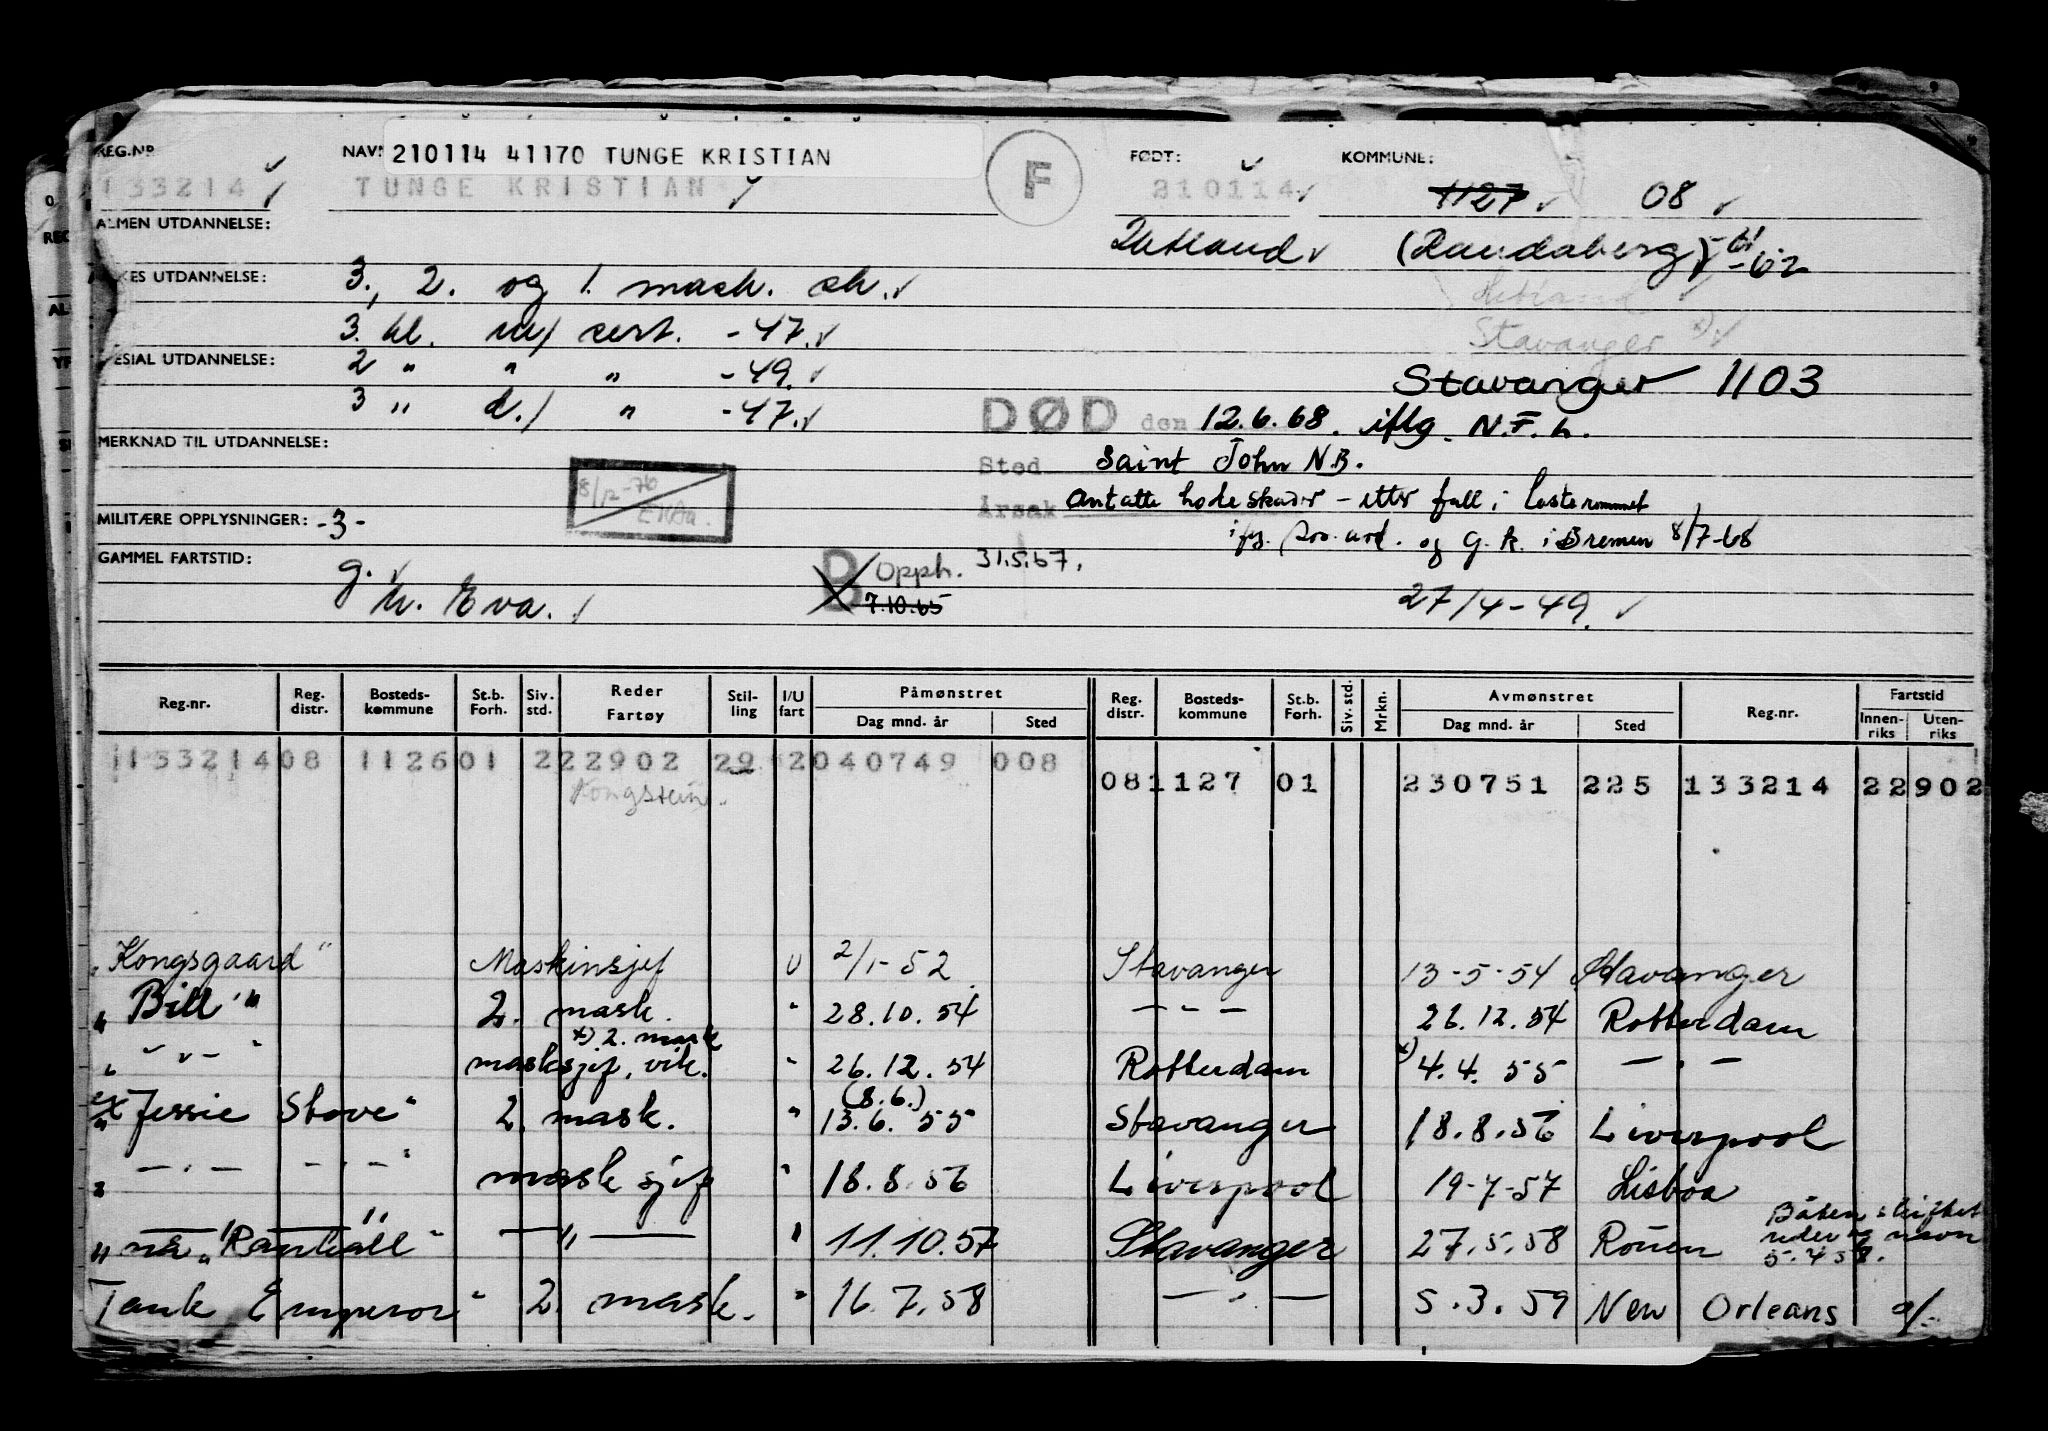 REG.NR. NAVN 210114 41170 TUNGE KRISTIAN F FØDT: KOMMUNE:
133214 TUNGE KRISTIAN 210114 1127 08
ALMEN UTDANNELSE: (Randaberg)
YRKES UTDANNELSE: 3., 2. og 1. mask. sk.
3. kl. m/ cert. -47.
Stavanger
SPESIAL UTDANNELSE: 2 " " " -49.
Stavanger 1103
3 " d./ " -47.
DØD den 12.6.68. iflg. N.F.h.
MERKNAD TIL UTDANNELSE:
Sted Saint John N.B.
8/12-76
Årsak Antatte hodeskader - etter fall i lasterommet
MILITÆRE OPPLYSNINGER: -3-
og G.k. i Bremen 8/7-68
GAMMEL FARTSTID: g.
B Opph. 31.5.67.
h. Eva. 7.10.65 27/4-49.
Reg.nr. Reg. distr. Bosteds-kommune St.b. Forh. Siv. std. Reder Fartøy Stilling I/U fart Påmønstret Dag mnd. år Sted Reg. distr. Bosteds-kommune St.b. Forh. Siv. std. Mrkn. Avmønstret Dag mnd. år Sted Reg.nr. Fartstid Innen-riks Uten-riks
133214 08 1126 01 2 22902 29 2 040749 008
08 1127 01 230751 225 133214 22902
Kongstein.
"Kongsgaard" Maskinsjef U 2/1-52 Stavanger 13-5-54 Stavanger
" Bill " 2. mask. " 28.10.54 - " - 26.12.54 Rotterdam
x) 2. mask
" - " - " masksjef, vik. " 26.12.54 Rotterdam x) 4.4.55 - " -
(8.6.)
ex "Jessie Stove" 2. mask. " 13.6.55 Stavanger 18.8.56 Liverpool
- " - - " - " mask sjef " 18.8.56 Liverpool 19-7-57 Lisboa
Båten skiftet
" nå "Ranhäll" - " - " 11.10.57 Stavanger 27.5.58 Rouen reder og navn
5.4.58.
Tank Emperor " 2. mask. " 16.7.58 - " - 5.3.59 New Orleans a/-